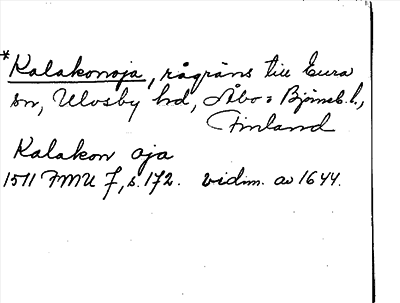 *Kalakonoja, rågräns till Eura
sn, Ulvsby hd, Åbo o Björneb. l.,
Finland
Kalakon oja
1511 FMU 7, s. 172. vidim. av 1644.